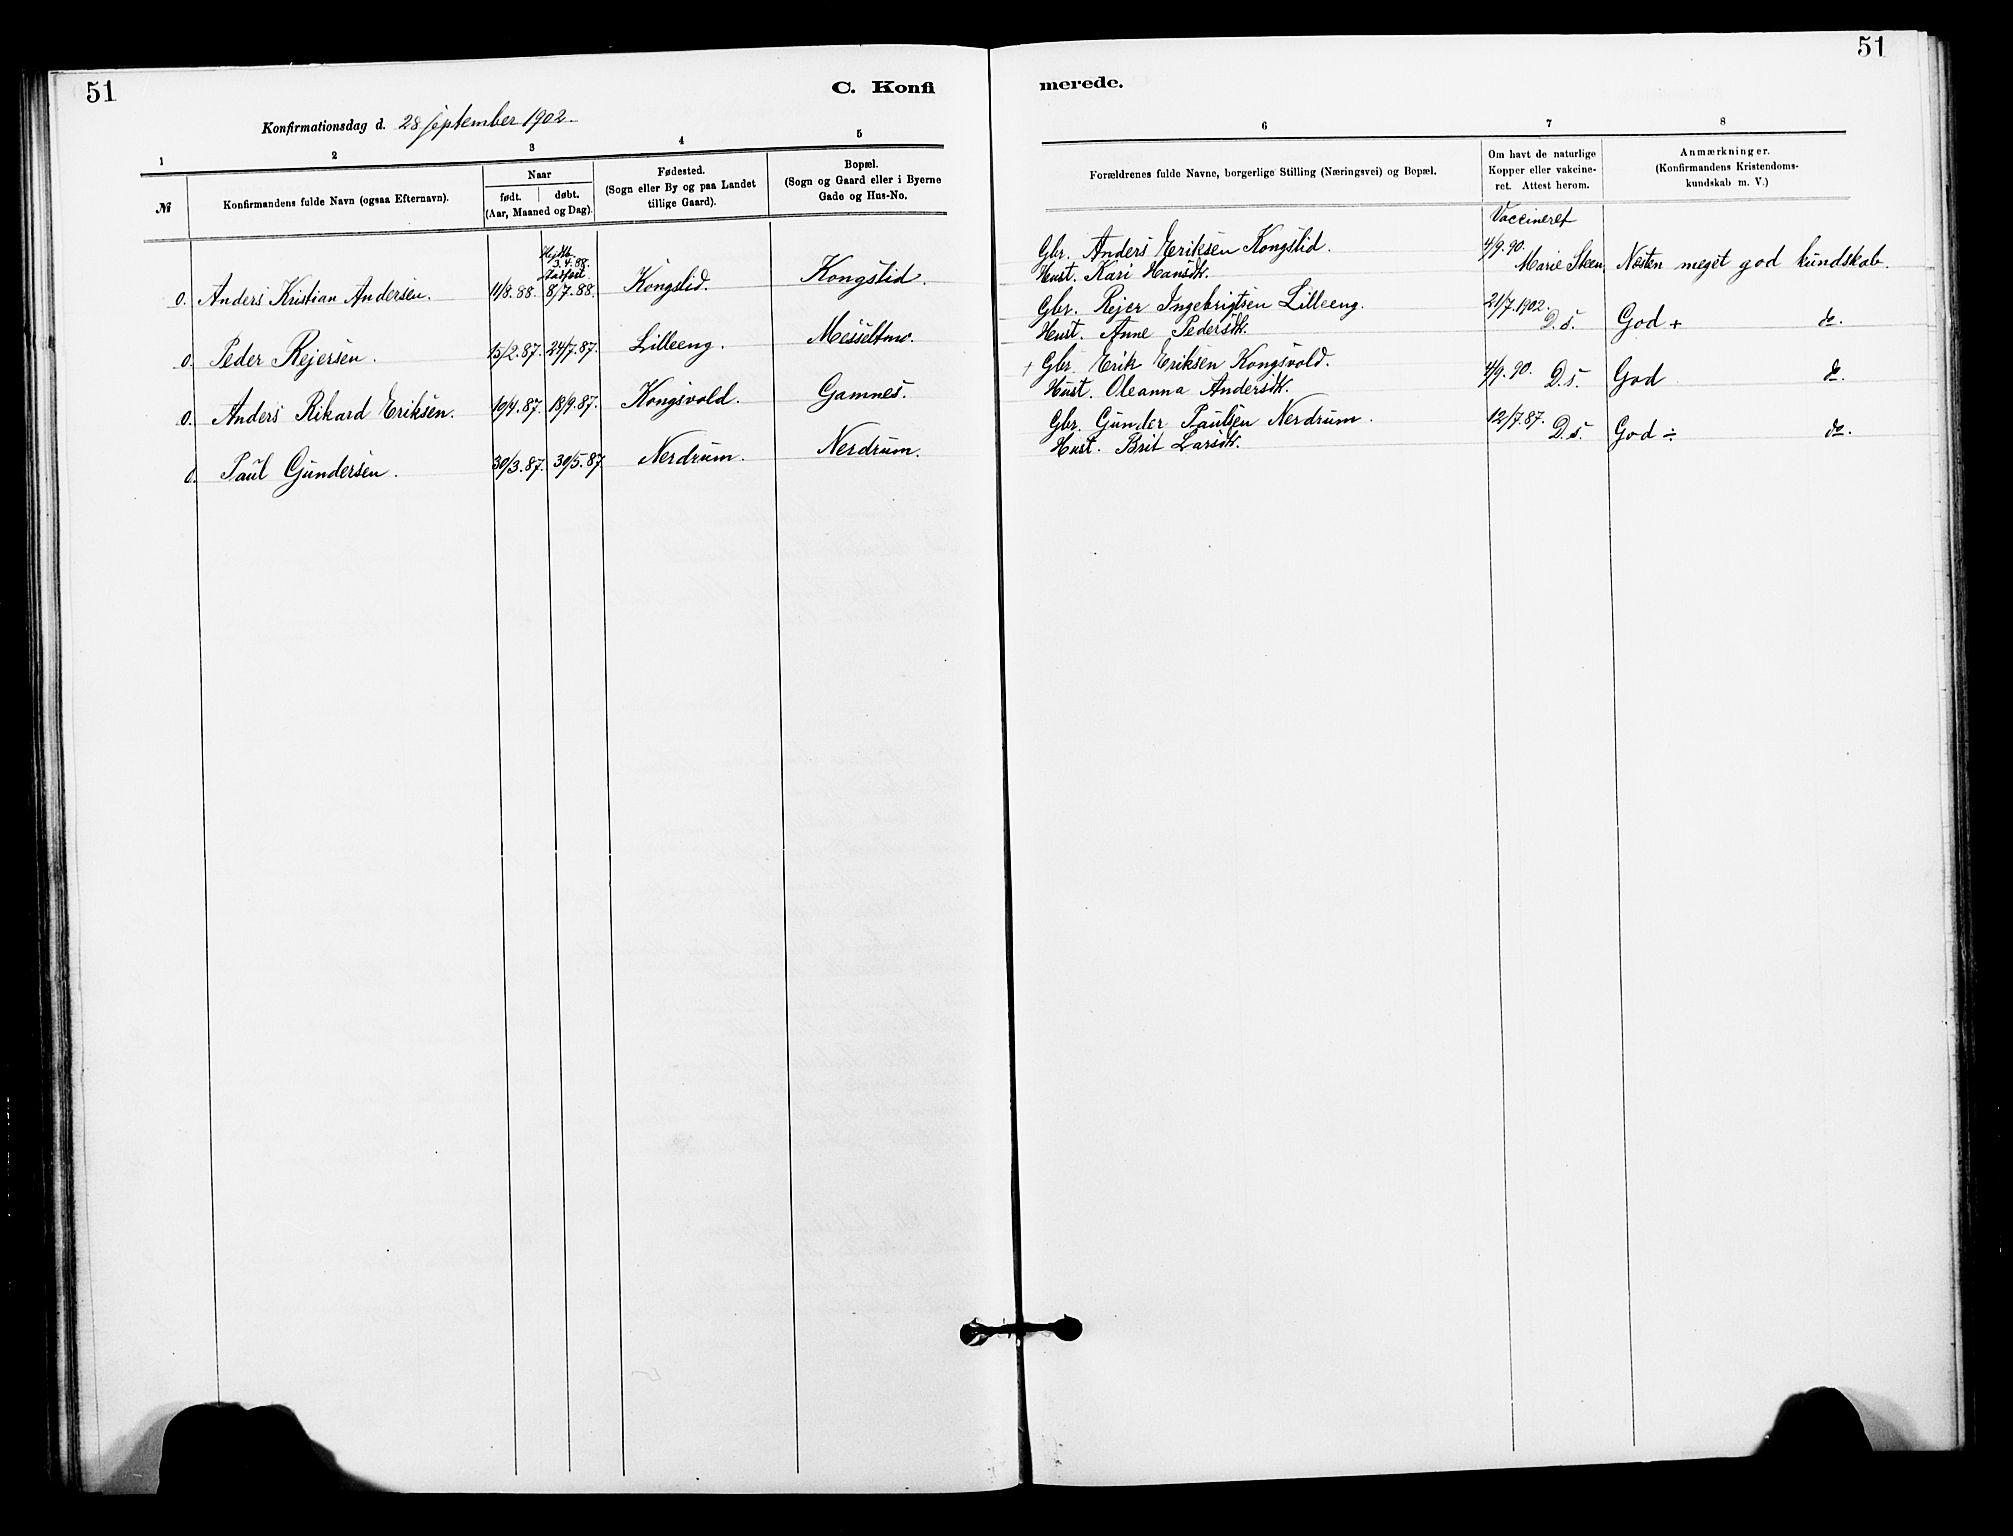 51
C. Konfi
Konfirmationsdag d. 28 september 1902.
1 2 3 4 5
№
Konfirmandens fulde Navn (ogsaa Efternavn).
Naar
født. døbt.
(Aar, Maaned og Dag).
Fødested.
(Sogn eller By og paa Landet
tillige Gaard).
Bopæl.
(Sogn og Gaard eller i Byerne
Gade og Hus-No.
3.4.88.
0. Anders Kristian Andersen. 11/3.88. 8/7.88. Kongslid. Kongslid.
0. Peder Rejersen. 15/2.87. 24/7.87. Lilleeng. Messeltmo.
0. Anders Rikard Eriksen. 19/4.87. 18/9.87. Kongsvold. Gamnes.
0. Paul Gundersen. 30/3.87. 30/5.87 Nerdrum. Nerdrum.
51
merede.
6 7 8
Forældrenes fulde Navne, borgerlige Stilling (Næringsvei) og Bopæl.
Om havt de naturlige
Kopper eller vakcine-
ret. Attest herom.
Anmærkninger.
(Konfirmandens Kristendoms-
kundskab m. V.)
Vaccineret
Gbr. Anders Eriksen Kongslid. 4/9.90.
Hust. Kari Hansdtr. Marie Steen Næsten meget god kundskab.
Gbr. Rejer Ingebrigtsen Lilleeng. 21/7.1902.
Hust. Anne Pedersdtr. D.s. God + do.
+ Gbr. Erik Eriksen Kongsvold. 4/9.90. D.s. God do.
Hust. Oleanna Andersdtr.
Gbr. Gunder Paulsen Nerdrum. 12/7.87. D.s. God ÷ do.
Hust. Brit Larsdtr.